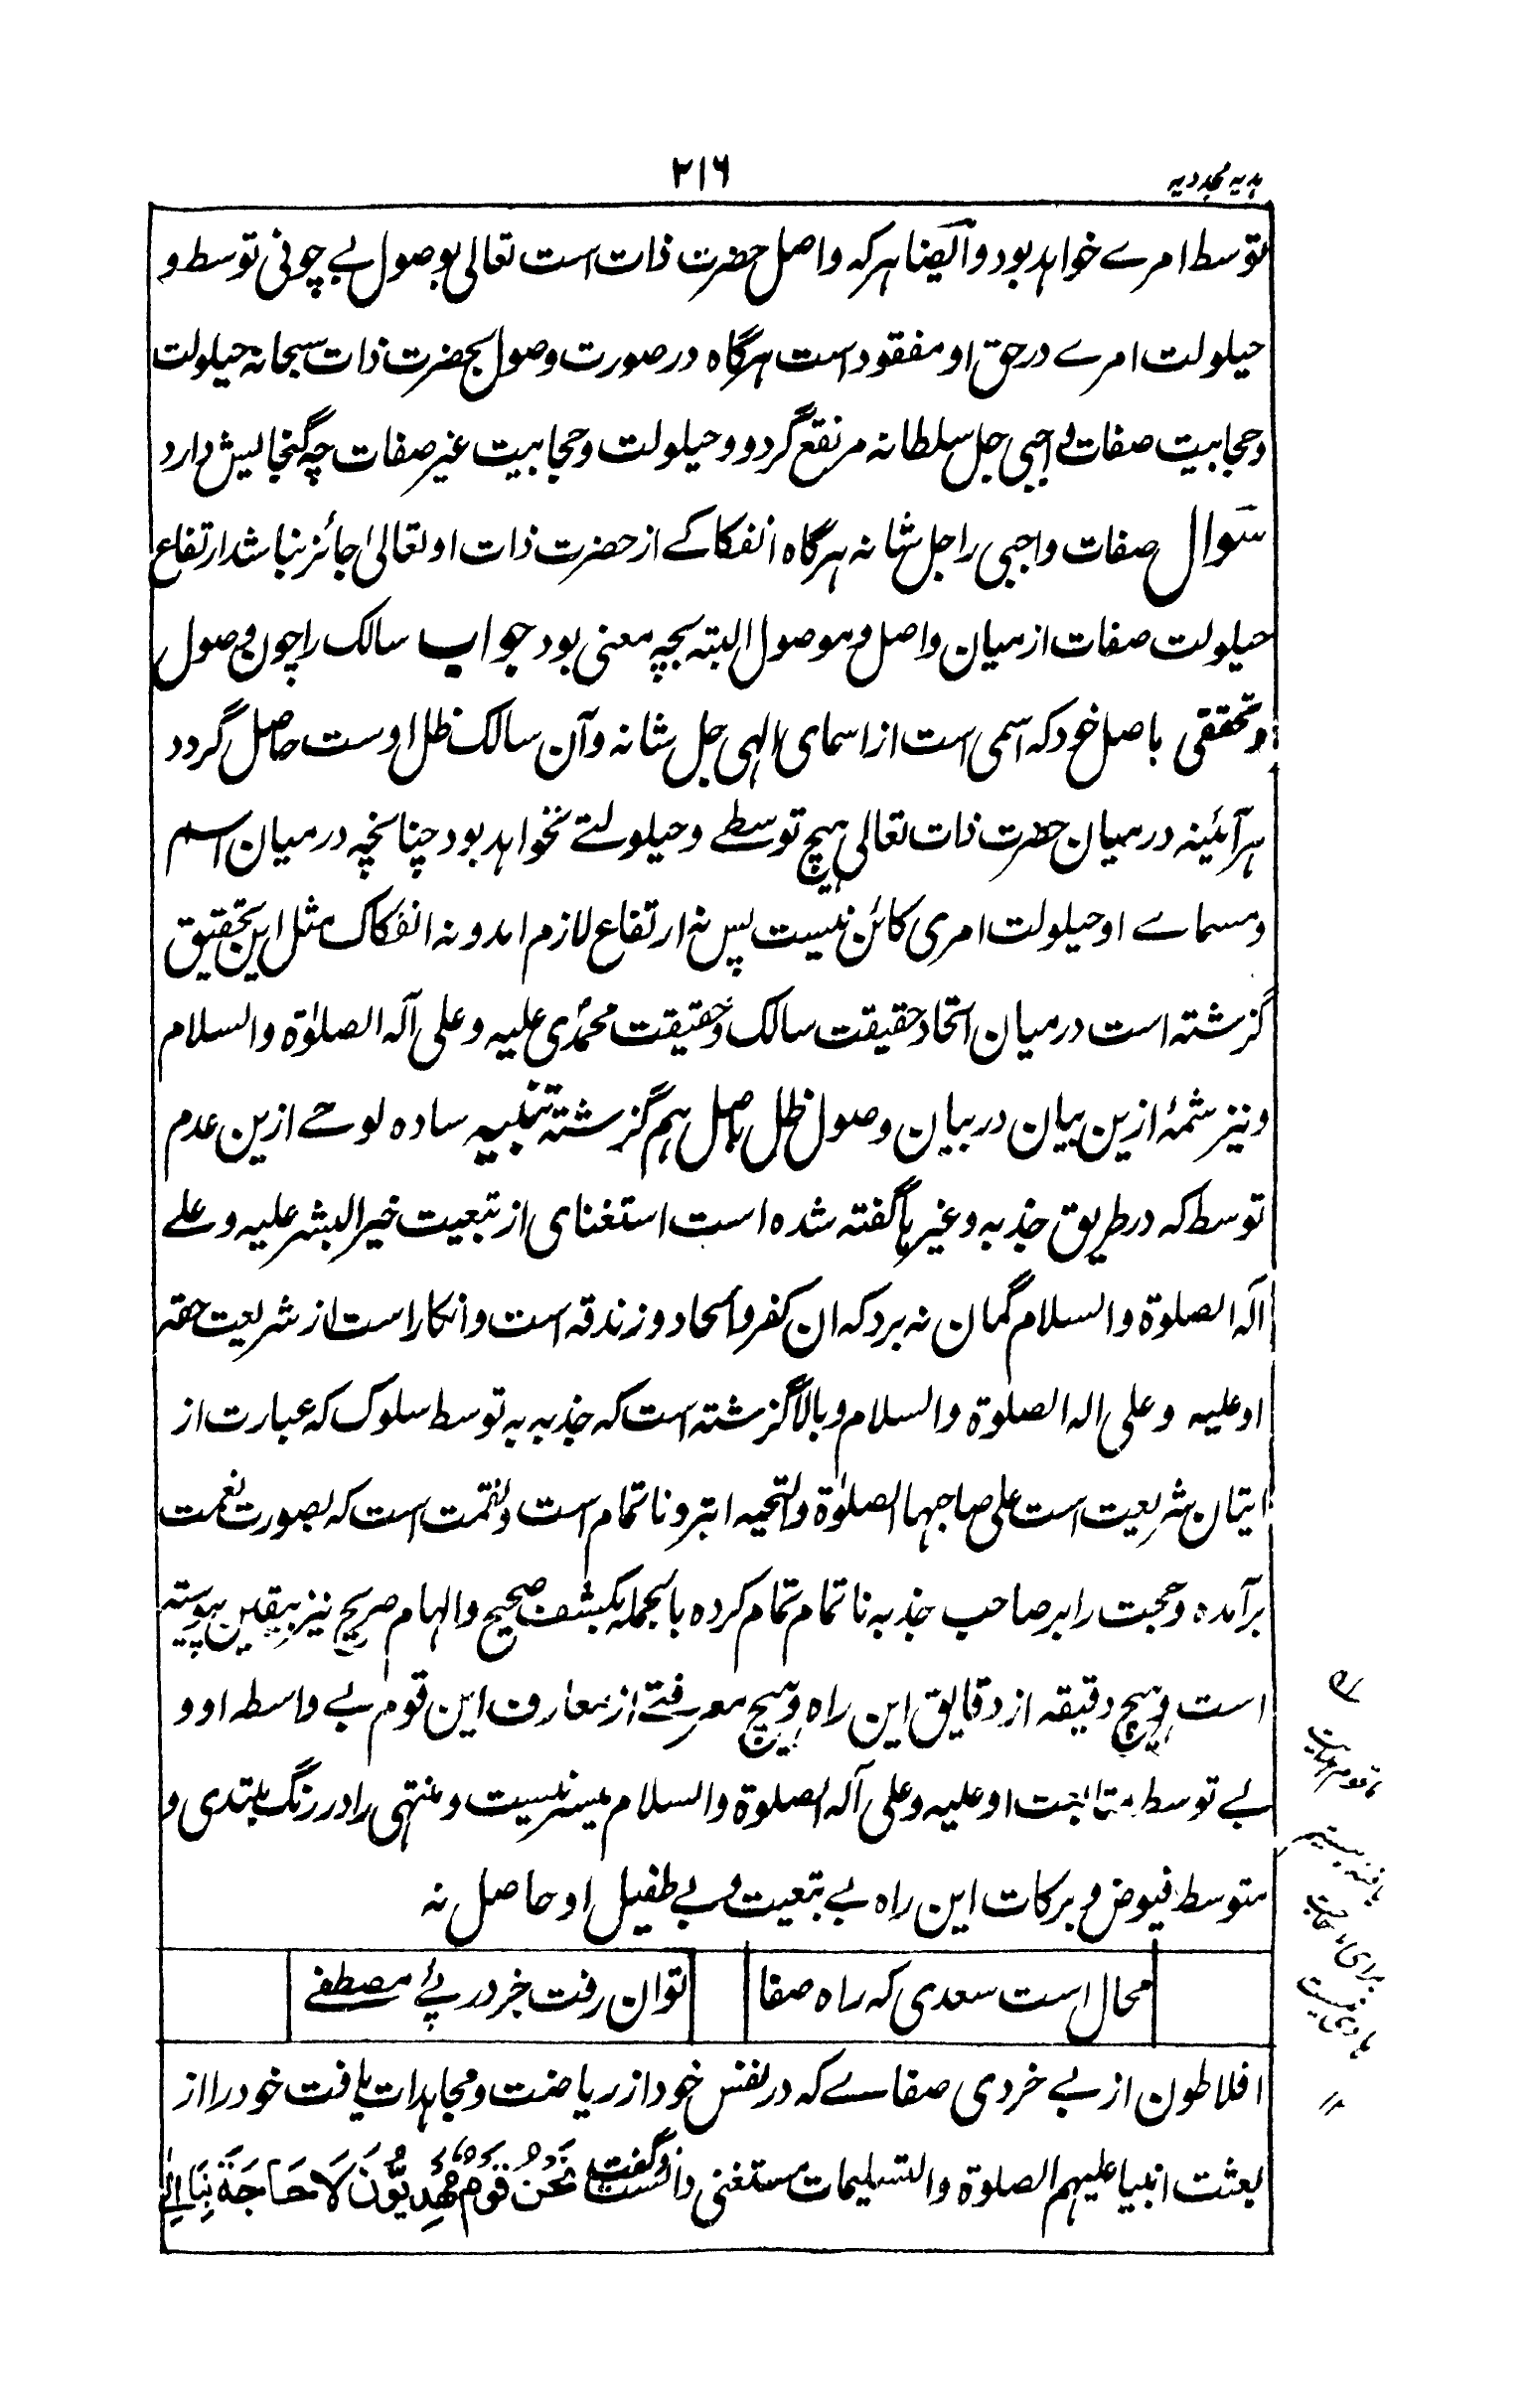 ہدیہ مجددیہ
۲۱۶
توسط امرے خواہد بود و ایضا ہر کہ واصل حضرت ذات است تعالی بوصول بے چونی توسط و
حیلولت امرے در حق او مفقود است ہرگاہ در صورت وصول بحضرت ذات سبحانہ حیلولت
و حجابیت صفات واجبی جل سلطانہ مرتفع گردد و حیلولت و حجابیت غیر صفات چہ گنجایش دارد
سَوال صفات واجبی را جل شانہ ہرگاہ انفکاکے از حضرت ذات او تعالیٰ جائز نباشد ارتفاع
حیلولت صفات از میان واصل و موصول البتہ بچہ معنی بود جواب سالک را چون وصول
و تحققی باصل خود کہ اسمی است از اسمای الٰہی جل شانہ و آن سالک ظل اوست حاصل گردد
ہر آئینہ درمیان حضرت ذات تعالی ہیچ توسطے و حیلولتے نخواہد بود چنانچہ درمیان اسم
و مسماے او حیلولت امری کائن نیست پس نہ ارتفاع لازم امد و نہ انفکاک مثل این تحقیق
گزشتہ است درمیان اتحاد حقیقت سالک و حقیقت محمدی علیہ و علی آلہ الصلوٰۃ والسلام
و نیز شمۂ ازین بیان در بیان وصول ظل باصل ہم گزشتہ تنبیہ سادہ لوحے ازین عدم
توسط کہ در طریق جذبہ و غیرہا گفتہ شدہ است استغنای از تبعیت خیر البشر علیہ و علے
آلہ الصلوۃ والسلام گمان نہ برد کہ ان کفر و الحاد و زندقہ است و انکار است از شریعت حقہ
او علیہ و علی الہ الصلوۃ والسلام و بالا گزشتہ است کہ جذبہ بہ توسط سلوک کہ عبارت از
اتیان شریعت است علی صاحبہا الصلوٰۃ والتحیہ ابتر و ناتمام است و نقمت است کہ بصورت نعمت
برآمدہ و حجت را بر صاحب جذبہ ناتمام تمام کردہ بالجملہ بکشف صحیح و الہام صریح نیز بیقین پیوستہ
است و ہیچ دقیقہ از دقایق این راہ و ہیچ معرفتے از معارف این قوم بے واسطہ او و
بے توسط متابعت او علیہ و علی آلہ الصلوۃ والسلام میسر نیست و منتہی را در رنگ مبتدی و
متوسط فیوض و برکات این راہ بے تبعیت و بے طفیل او حاصل نہ
محال است سعدی کہ راہ صفا
توان رفت جز در پئے مصطفے
افلاطون از بے خردی صفاے کہ در نفس خود از ریاضت و مجاہدات یافت خود را از
بعثت انبیا علیہم الصلوۃ والتسلیمات مستغنی دانست و گفت نَحْنُ قَوْمٌ مُهَدِيُّونَ لَا حَاجَةَ بِنَا اِلیٰ